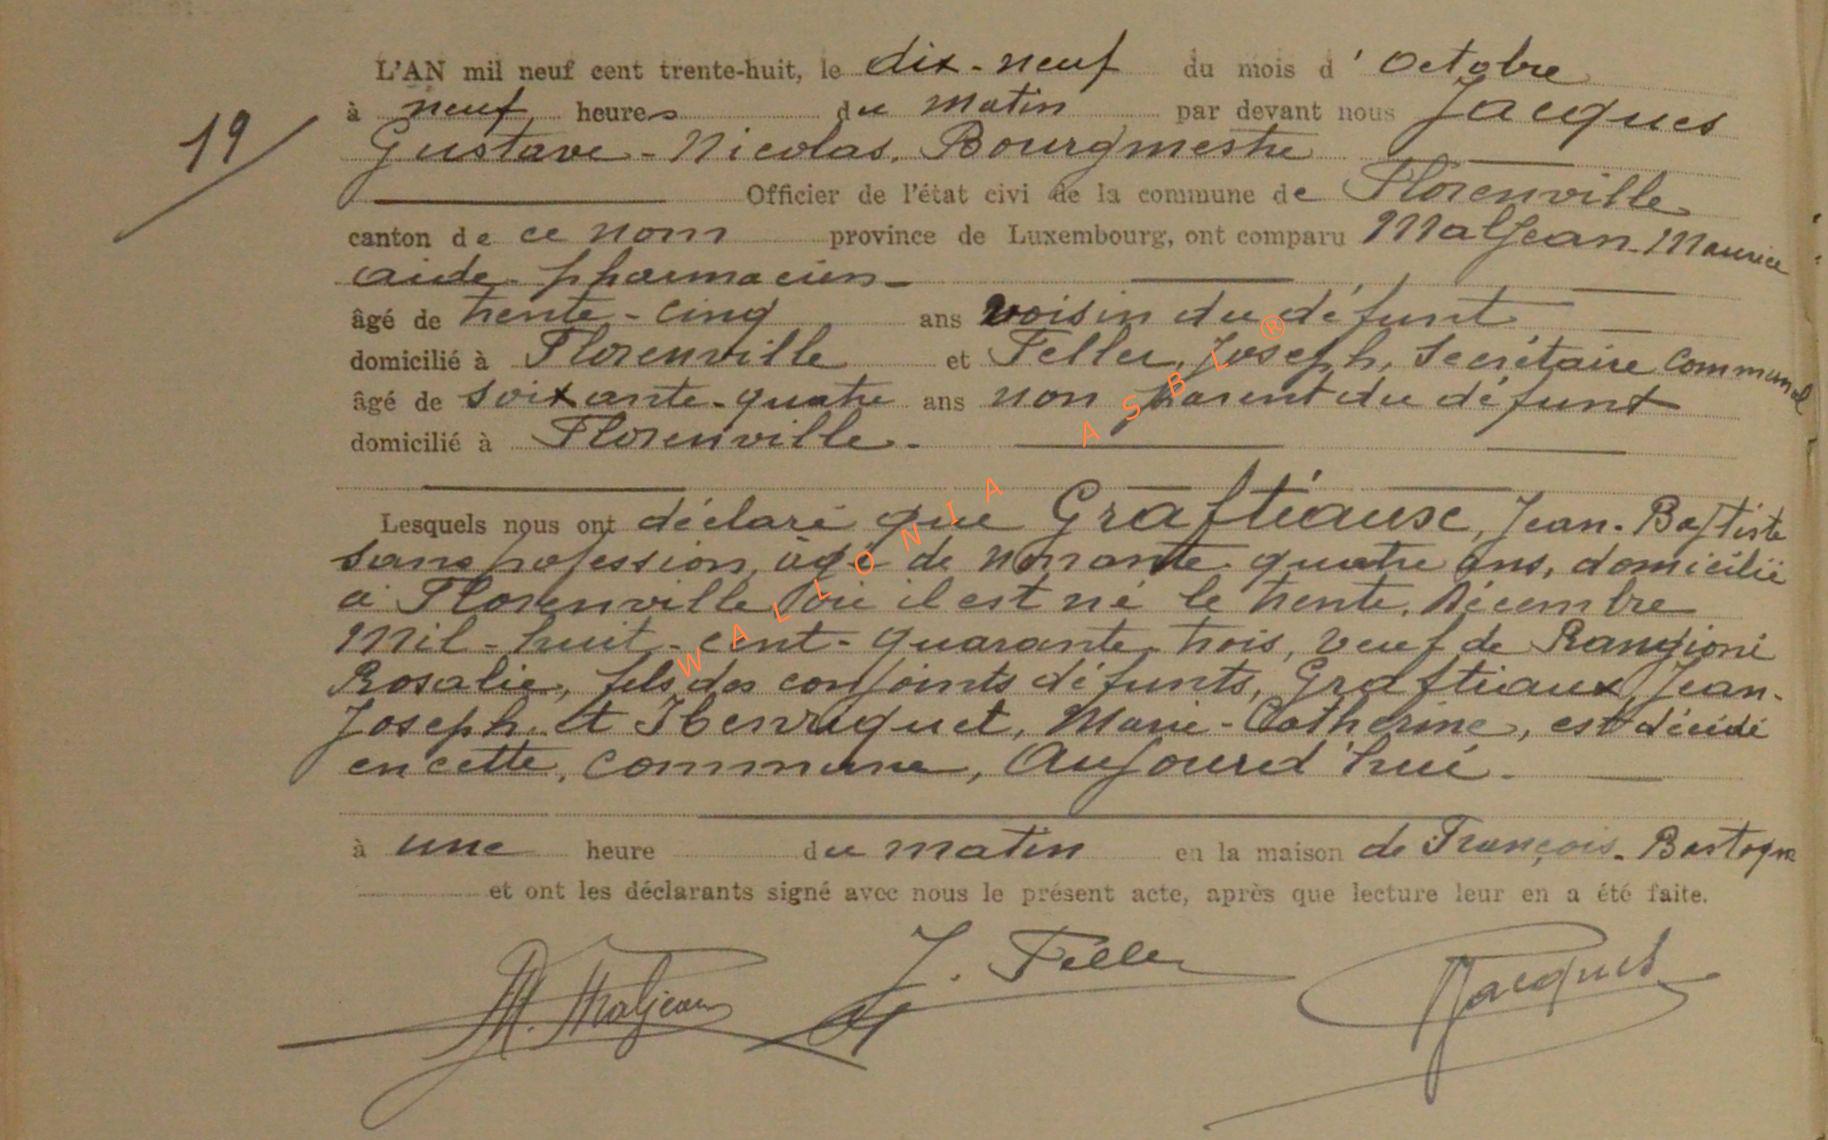 L'AN mil neuf cent trente-huit, le dix-neuf du mois d'Octobre
19/
à neuf heures du matin par devant nous Jacques
Gustave-Nicolas, Bourgmestre
Officier de l'état civi de la commune de Florenville
canton de ce nom province de Luxembourg, ont comparu Maljean-Maurice
aide-pharmacien
âgé de trente-cinq ans voisin du défunt
domicilié à Florenville et Feller, Joseph, Secrétaire Communal
âgé de soixante-quatre ans non parent du défunt
domicilié à Florenville.
Lesquels nous ont déclaré que Graftiause, Jean-Baptiste
sans profession, âgé de nonante quatre ans, domicilié
à Florenville où il est né le trente Décembre
Mil-huit-cent-quarante-trois, veuf de
Rosalie, fils des conjoints défunts, Graftiaux, Jean-
Joseph et Henriquet, Marie-Catherine, est décédé
en cette, commune, Aujourd'hui.
à une heure du matin en la maison de François-Bastogne
et ont les déclarants signé avec nous le présent acte, après que lecture leur en a été faite.
M. Maljean J. Feller Jacques
WALLONIA ASBL ®